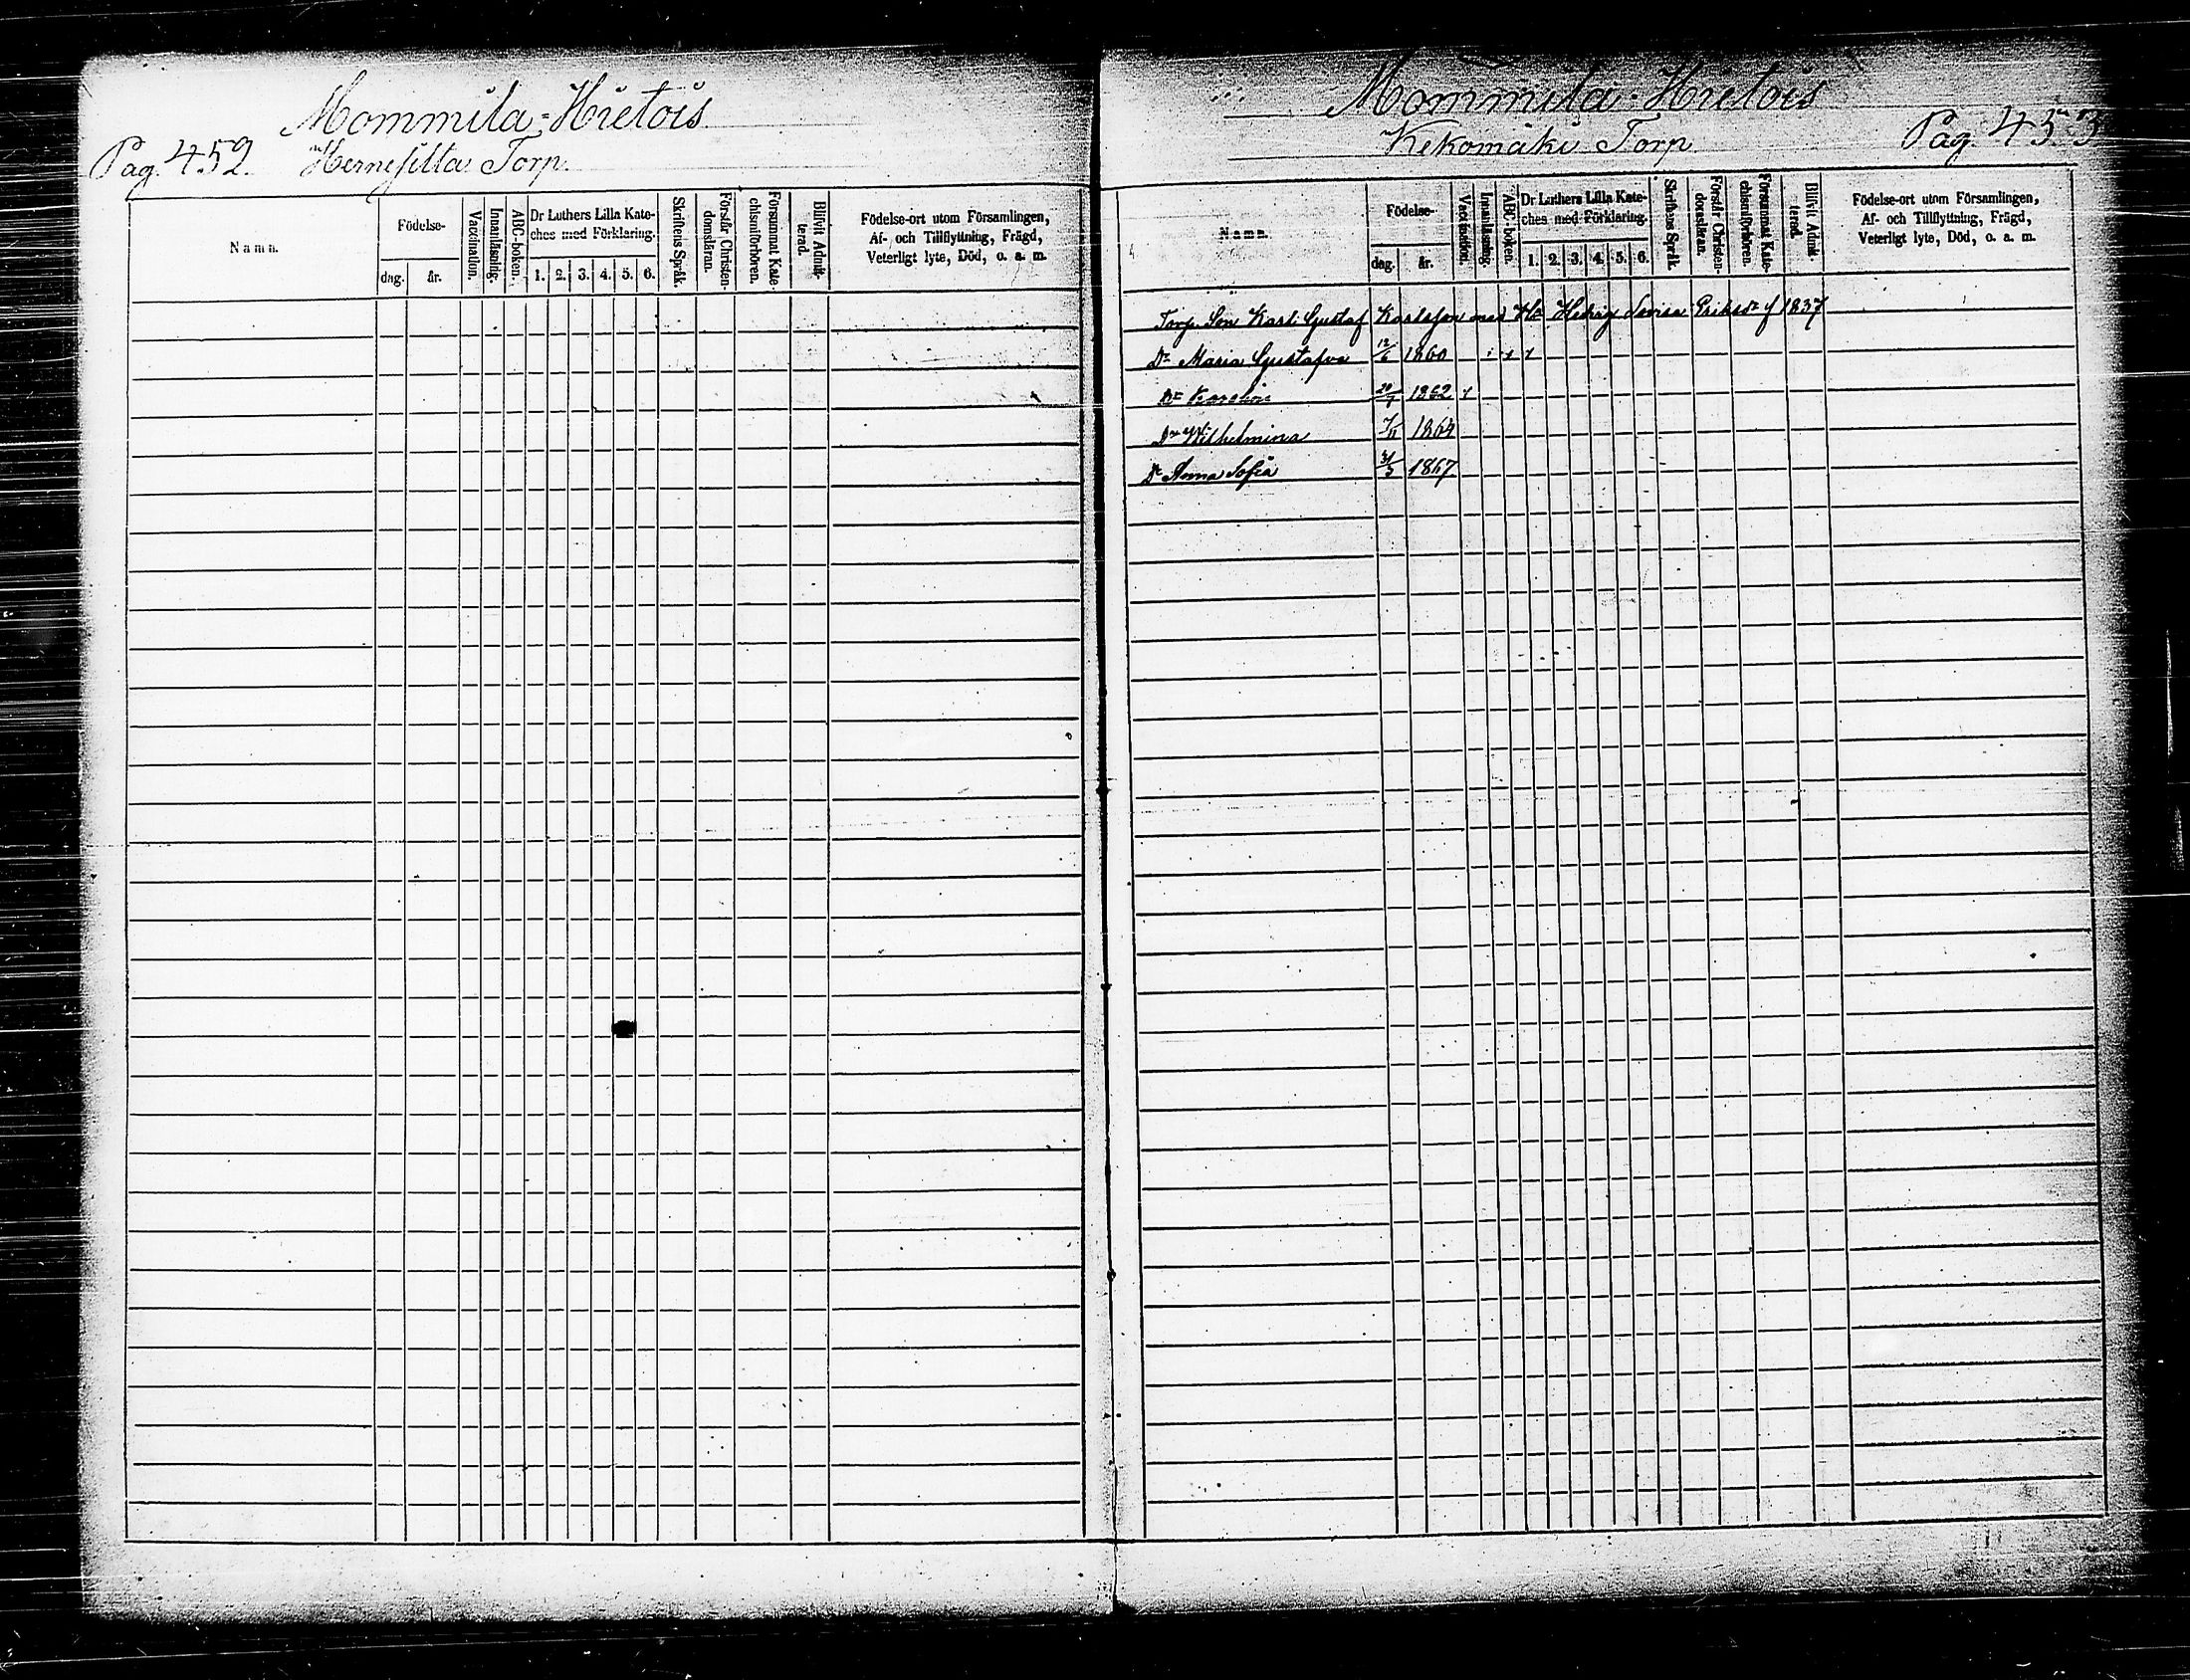 Mommila-Hietois
Pag. 452. Hernesilta Torp.
Namn.
Födelse-
dag. år.
Vaccination.
Innanläsning.
ABC-boken.
Dr Luthers Lilla Kate-
ches med Förklaring.
1. 2. 3. 4. 5. 6.
Skriftens Språk.
Förstår Christen-
domsläran.
Försummat Kate-
chismiförhören.
Blifvit Admit-
terad.
Födelse-ort utom Församlingen,
Af- och Tillflyttning, Frägd,
Veterligt lyte, Död, o. a. m.
Mommila-Hietois
Kekomäki Torp
Pag. 453
Namn.
Födelse-
dag. år.
Vaccination.
Innanläsning.
ABC-boken.
Dr Luthers Lilla Kate-
ches med Förklaring.
1. 2. 3. 4. 5. 6.
Skriftens Språk.
Förstår Christen-
domsläran.
Försummat Kate-
chismiförhören.
Blifvit Admit-
terad.
Födelse-ort utom Församlingen,
Af- och Tillflyttning, Frägd,
Veterligt lyte, Död, o. a. m.
Torp. Son Karl Gustaf Karlsson med Hu Hedvig Lovisa Eriksdr f 1837
Dr Maria Gustafva 12/6 1860
Dr Karolina 20/7 1862
Dr Wilhelmina 7/11 1864
Dr Anna Sofia 31/3 1867